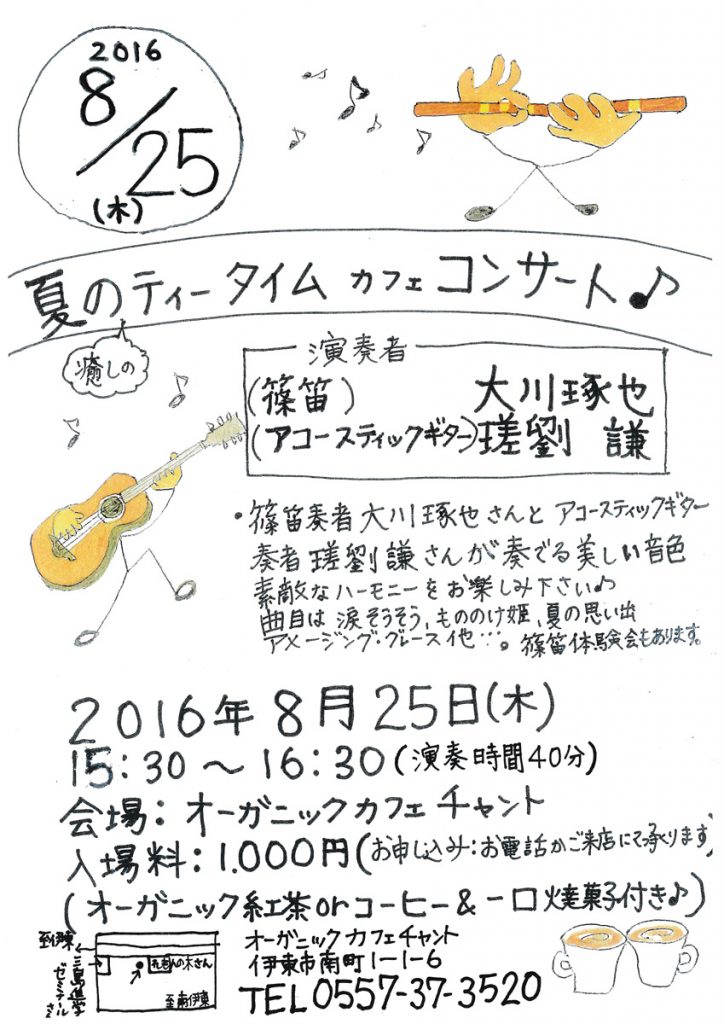 2016
8/25
(木)
夏のティータイム カフェ コンサート♪
癒しの
演奏者
(篠笛) 大川琢也
(アコースティックギター) 瑳劉 謙
・篠笛奏者 大川琢也さんと アコースティックギター
奏者 瑳劉謙さんが奏でる美しい音色
素敵なハーモニーをお楽しみ下さい♪
曲目は 涙そうそう, もののけ姫, 夏の思い出
アメージング・グレース他…。篠笛体験会もあります。
2016年 8月 25日(木)
15:30 〜 16:30 (演奏時間40分)
会場: オーガニックカフェ チャント
入場料: 1.000円 (お申し込み:お電話かご来店にて承ります)
(オーガニック紅茶orコーヒー & 一口焼菓子付き♪)
至伊東
三島進学
ゼミナールさん
至南伊東
オーガニックカフェチャント
伊東市南町1-1-6
TEL 0557-37-3520